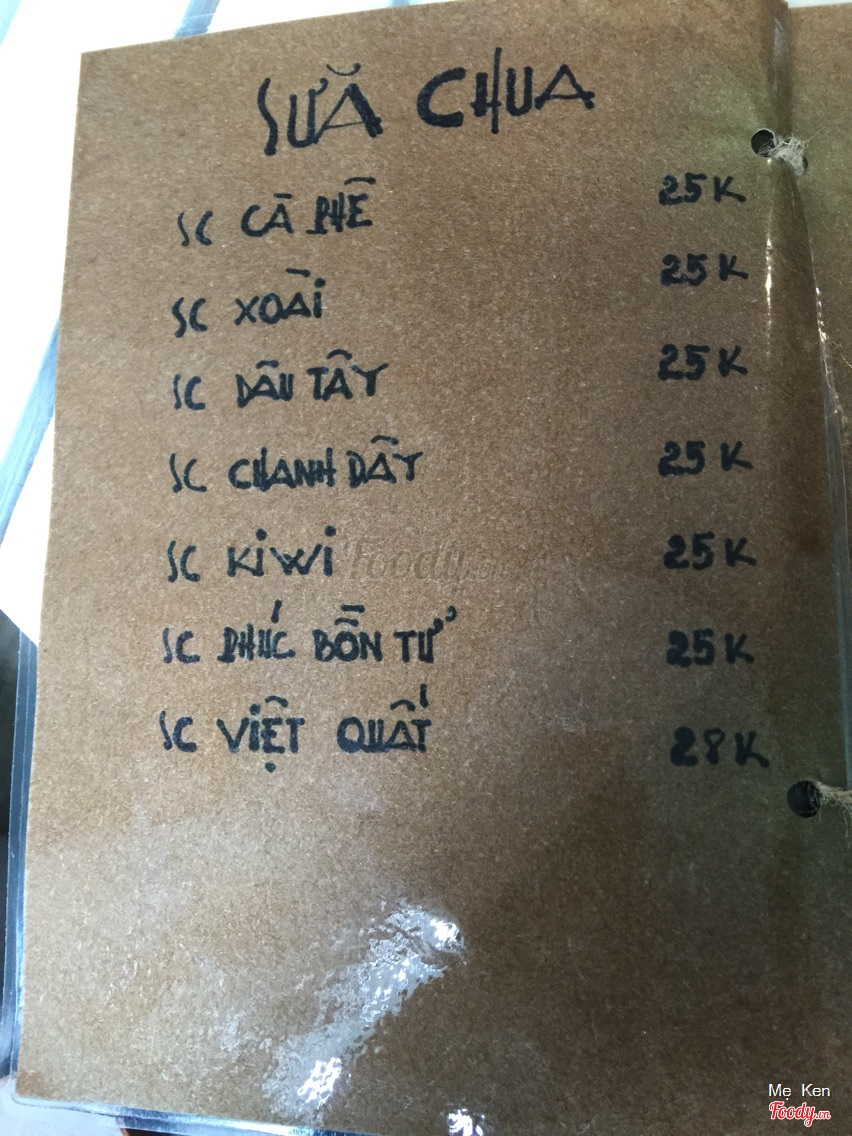 SỮA CHUA
SC CÀ PHÊ 25K
SC XOÀI 25K
SC DÂU TÂY 25K
SC CHANH DÂY 25K
SC KIWI 25K
SC PHÚC BỒN TỬ 25K
SC VIỆT QUẤT 28K
Foody.vn
Mẹ Ken
Foody.vn